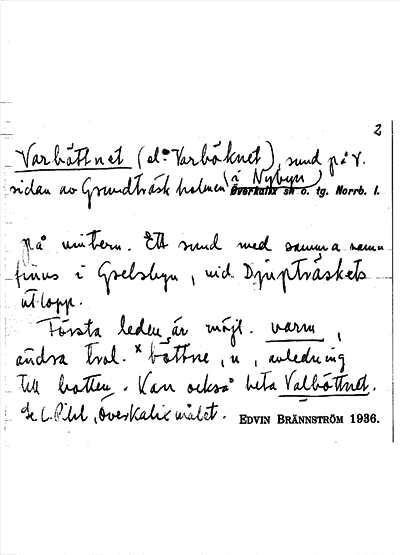 2
Varböttnet (el. Varböknet), sund på v.
sidan av Grundträskholmen (i Nybyn)
Överkalix sn o. tg. Norrb. l.
på vintern. Ett sund med samma namn
finns i Grelsbyn, vid Djupträskets
utlopp.
Första leden är möjl. varm,
andra trol. *böttne, n, avledning
till botten. Kan också heta Valböttnet.
Se C. Pihl, Överkalixmålet. EDVIN BRÄNNSTRÖM 1936.